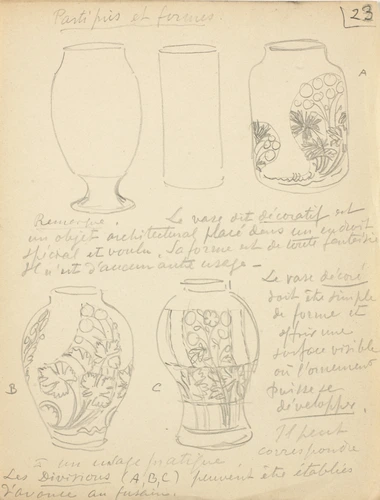 Partis pris et formes.
23
A
Remarque. Le vase dit décoratif est
un objet architectural placé dans un endroit
spécial et voulu. Sa forme est de toute fantaisie
Il n'est d'aucun autre usage —
Le vase décoré
doit être simple
de forme et
offrir une
surface visible
où l'ornement
puisse se
développer.
B
C
Il peut
correspondre
à un usage pratique
Les Divisions (A, B, C) peuvent être établies
d'avance au fusain.